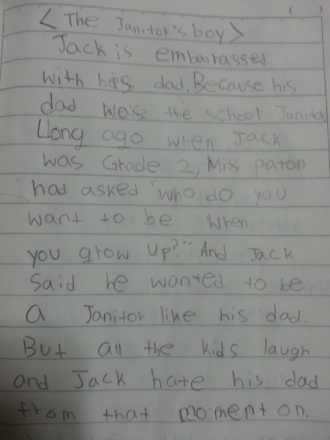 <The Janitor's boy>
Jack is embarassed
with his dad. Because his
dad was the school Janitor
Llong ago when Jack
was Grade 2, Miss paton
had asked "who do you
want to be when
you grow up?" And Jack
said he wanted to be
a Janitor like his dad.
But all the kids laugh
and Jack hate his dad
from that moment on.